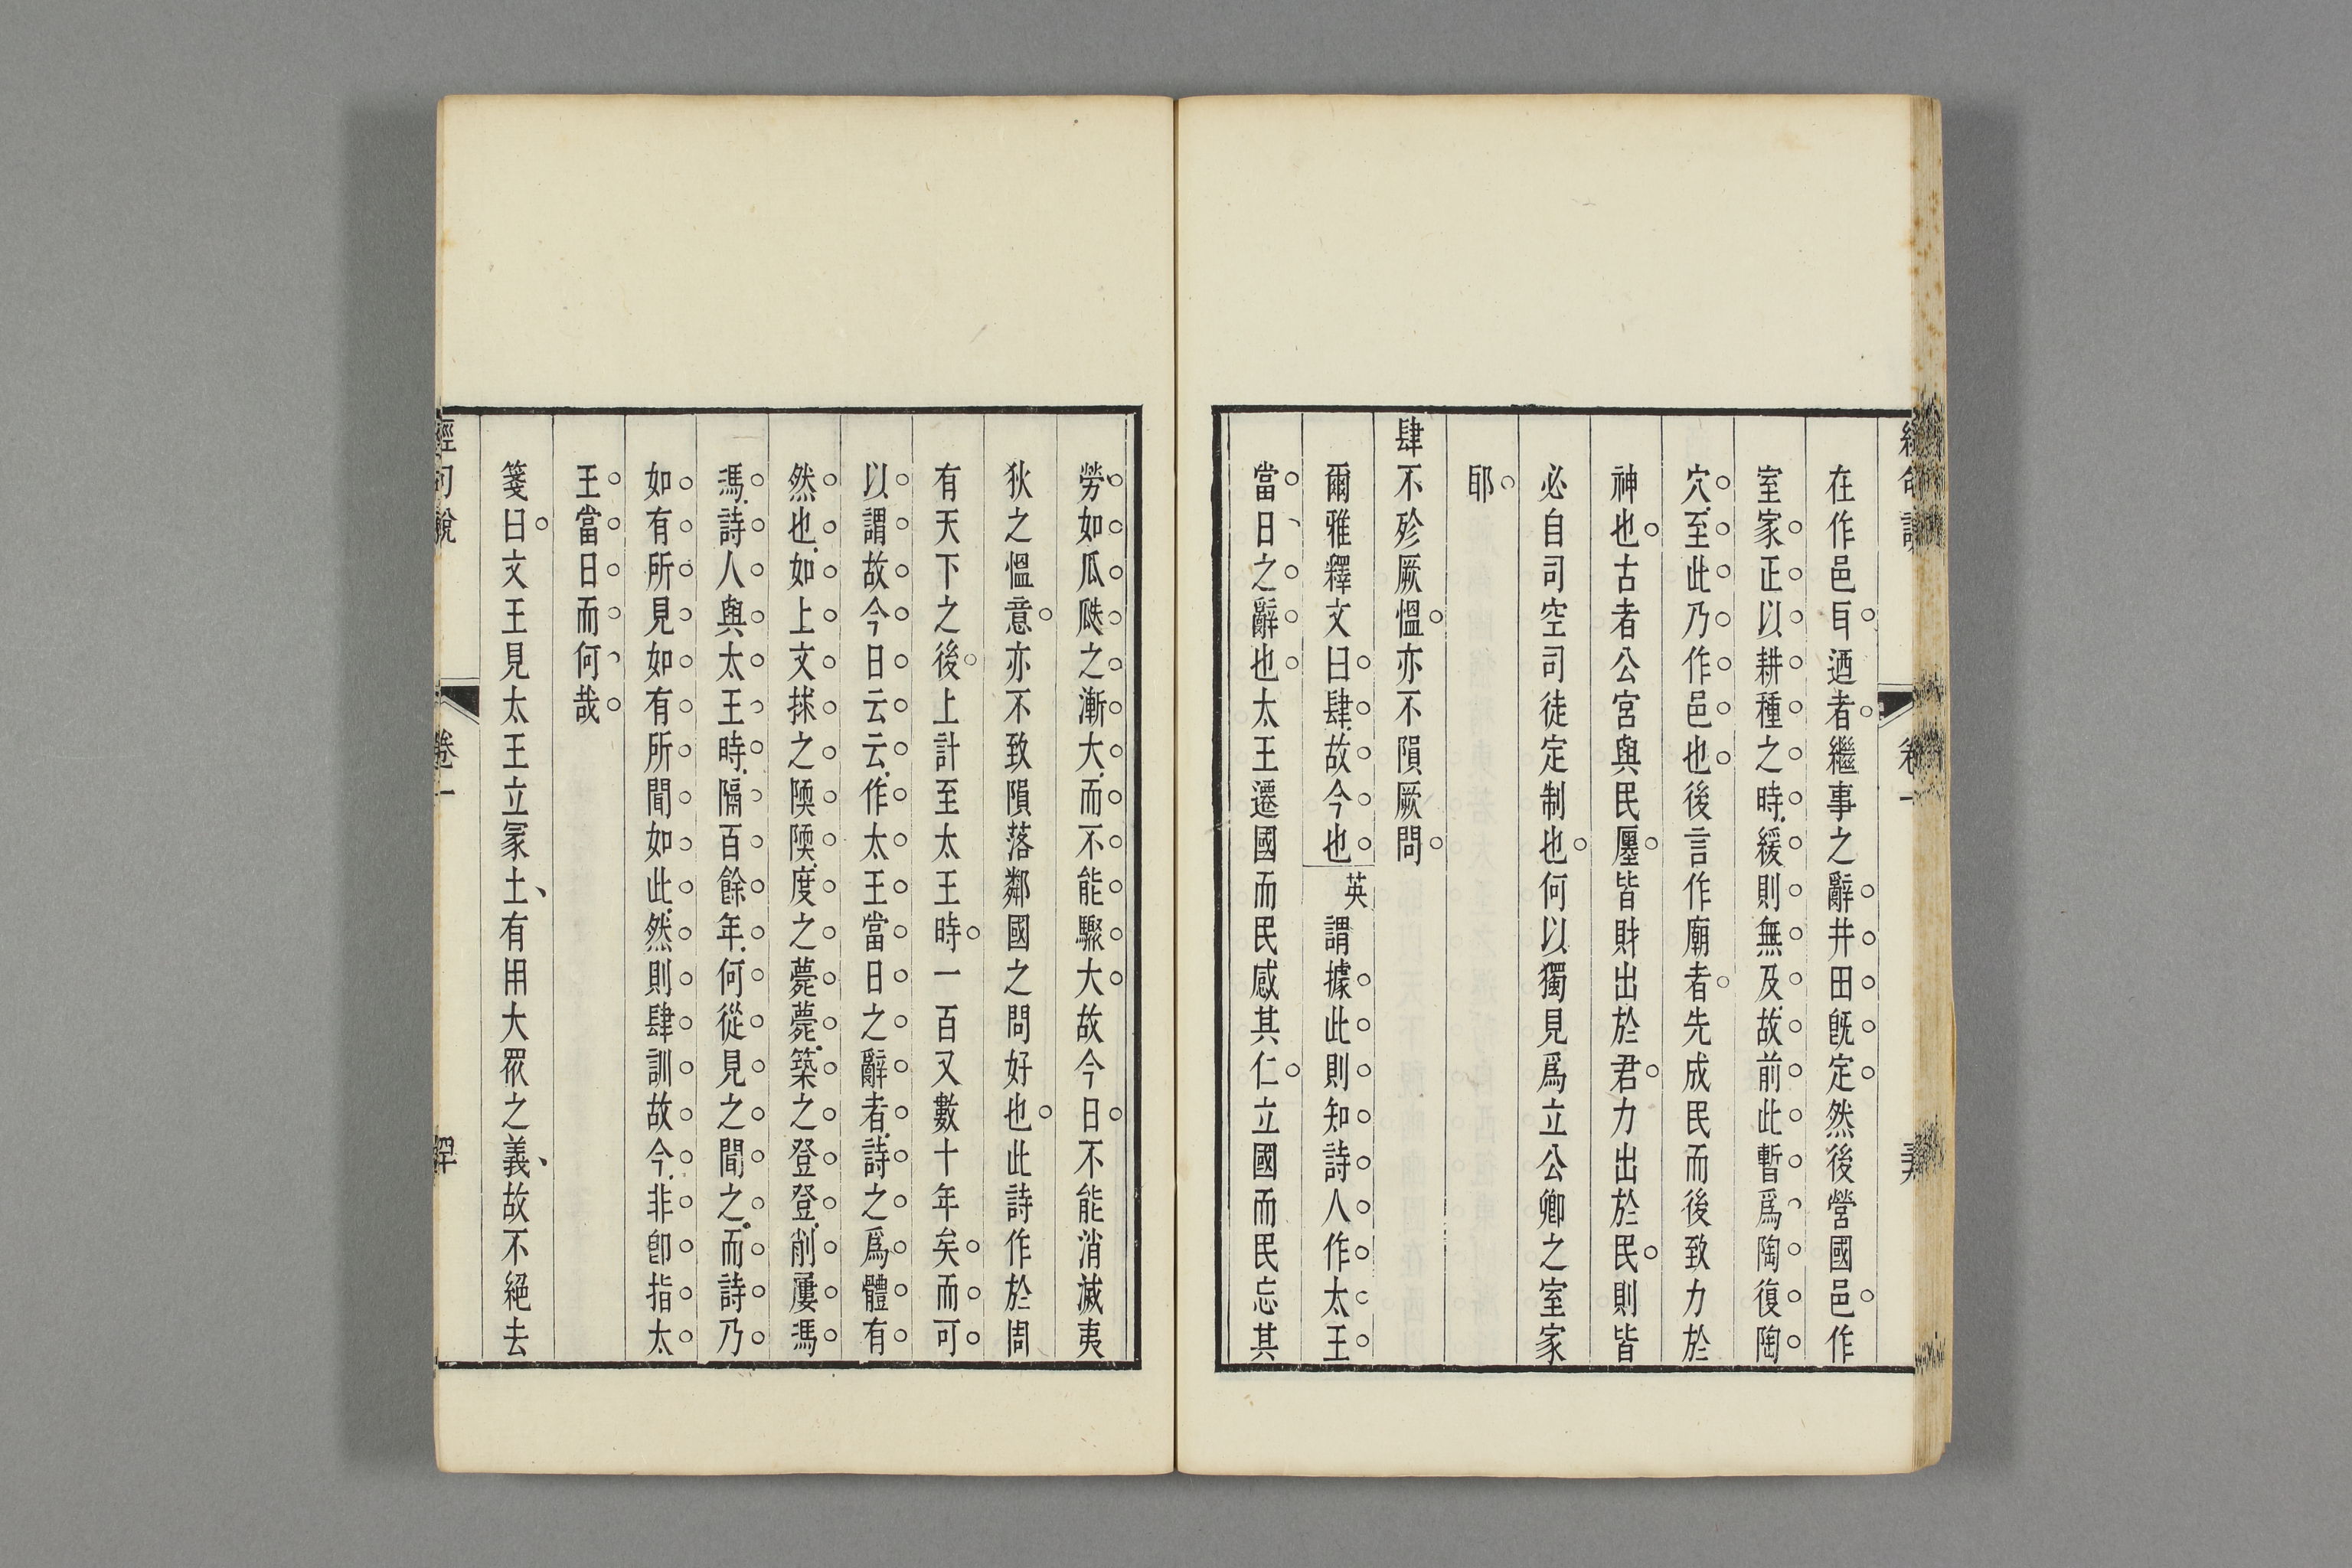 在作邑㠯迺者繼事之辭井田旣定然後營國邑作
室家正以耕種之時緩則無及故前此暫爲陶復陶
穴至此乃作邑也後言作廟者先成民而後致力於
神也古者公宮與民廛皆財出於君力出於民則皆
必自司空司徒定制也何以獨見爲立公卿之室家
耶
肆不殄厥慍亦不隕厥問
爾雅釋文曰肆故今也英謂據此則知詩人作太王
當日之辭也太王遷國而民感其仁立國而民忘其
勞如瓜瓞之漸大而不能驟大故今日不能消滅夷
狄之慍意亦不致隕落鄰國之問好也此詩作於周
有天下之後上計至太王時一百又數十年矣而可
以謂故今日云云作太王當日之辭者詩之爲體有
然也如上文捄之陾陾度之薨薨築之登登削屢馮
馮詩人與太王時隔百餘年何從見之聞之而詩乃
如有所見如有所聞如此然則肆訓故今非卽指太
王當日而何哉
箋曰文王見太王立冢土有用大眾之義故不絕去
經句說
卷一